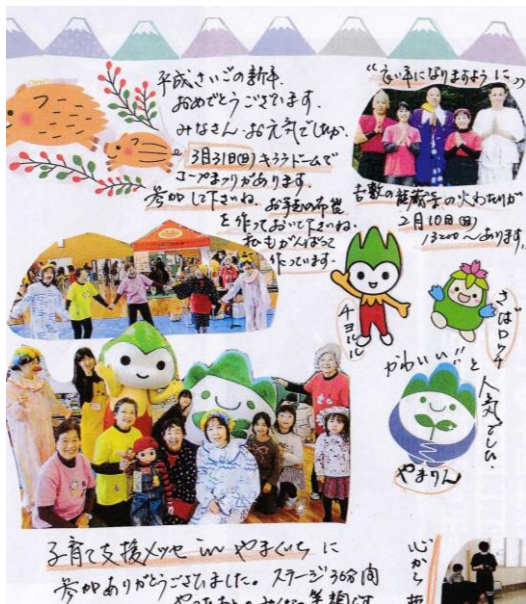 平成さいごの新年.
おめでとうございます.
みなさん.お元気でしたか.
3月31日(日)きららドームで
コープまつりがあります.
参加して下さいね.お手玉の布袋
を作っておいて下さいね.
私もがんばって
作っています.
"良い年になりますように"
吉敷の龍蔵寺の火わたりが
2月10日(日)
13:00〜あります.
チョルル
さばロッチ
かわいい!!と
人気でした.
やまりん
子育て支援メッセ in やまぐちに
参加ありがとうございました。ステージ30分間
心から